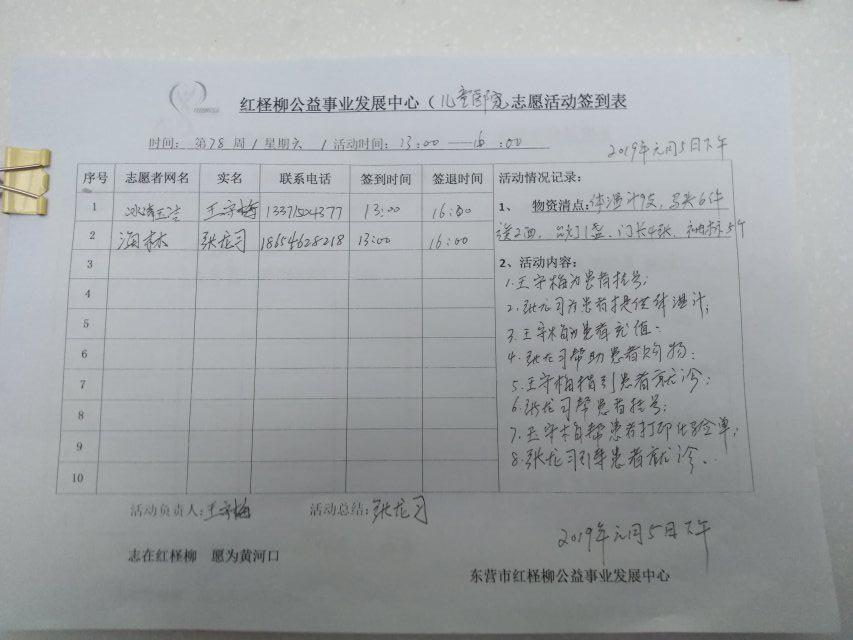 红柽柳公益事业发展中心（儿童医院志愿活动签到表
时间：第78周/星期六/活动时间：13:00—16:00
2019年元月5日下午
序号 志愿者网名 实名 联系电话 签到时间 签退时间 活动情况记录：
1 冰清玉洁 王守梅 13371504377 13:00 16:00
2 海林 张龙习 18654628218 13:00 16:00
3
4
5
6
7
8
9
10
1、物资清点：体温计9支，马夹6件
2、活动内容：
1.王守梅为患者挂号；
2.张龙习为患者提供体温计；
3.王守梅为患者充值。
4.张龙习帮助患者购物；
5.王守梅指引患者就诊；
6.张龙习帮患者挂号；
7.王守梅帮患者打印化验单；
8.张龙习引导患者就诊、
活动负责人：王守梅 活动总结：张龙习
2019年元月5日下午
志在红柽柳 愿为黄河口
东营市红柽柳公益事业发展中心